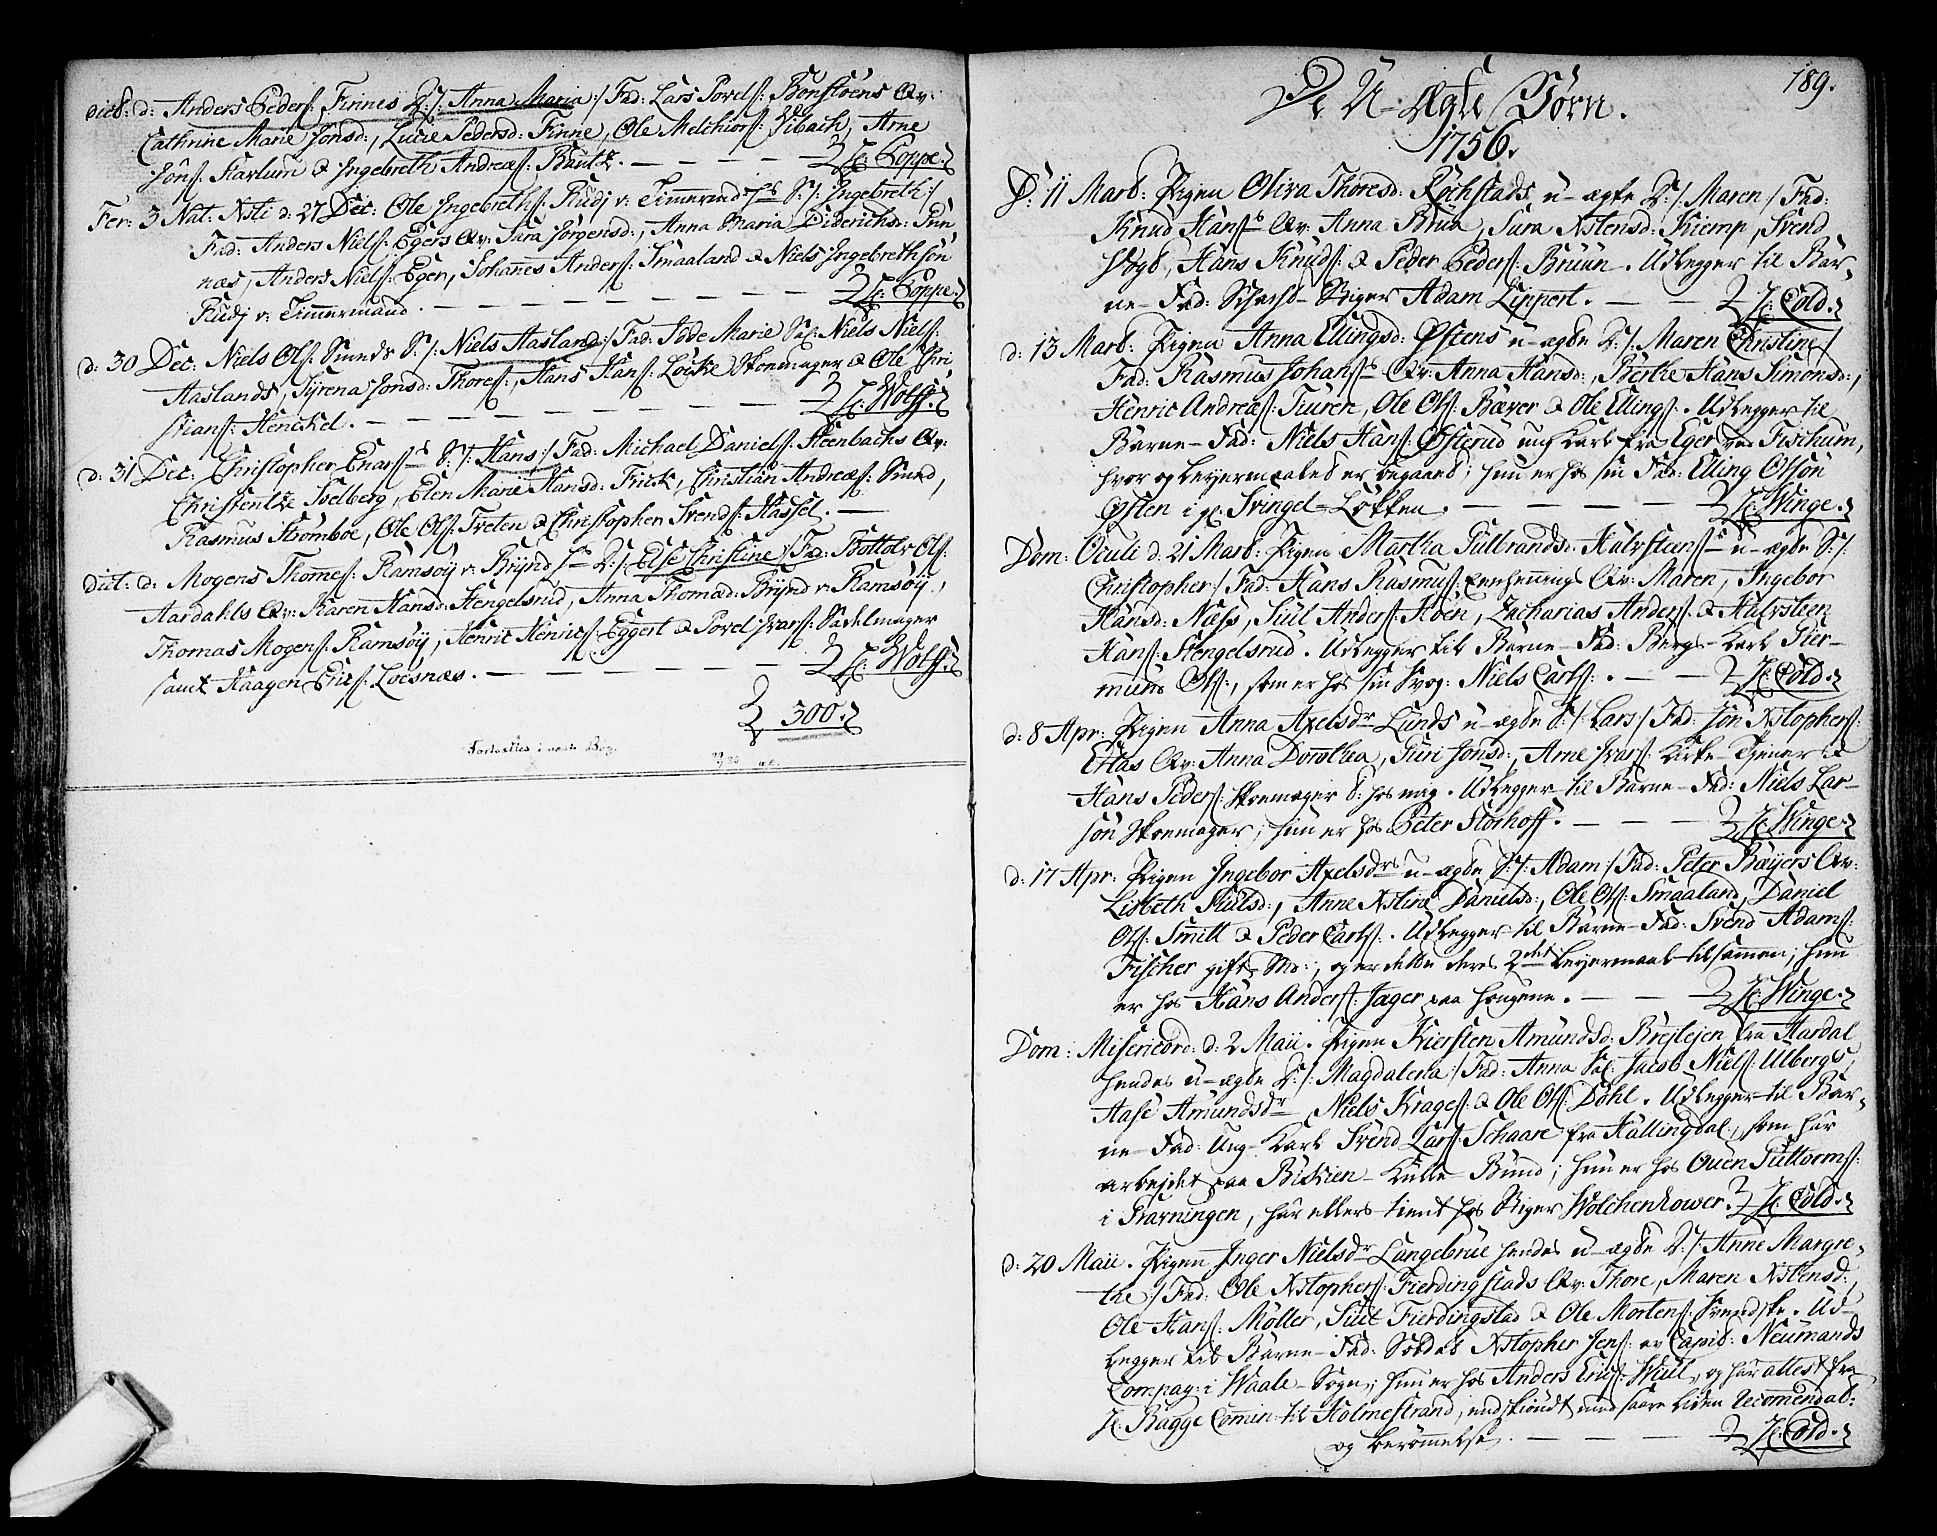 dict: d: Anders Peders: Finnes D:/: Anna Maria :/ Fad: Lars Povels: Bonstoens Qv:
Cathrine Marie Jonsd:, Lucie Pedersd: Finne, Ole Melchiors: Vibach, Arne
Jöns: Skarlum & Ingebreth Andreæs: Bautz. — — — H: Coppe.
Fer: 3 Nat: Xsti d: 27 Dec: Ole Ingebreths: Rudj v: Timmermands S:/: Ingebreth :/
Fad: Anders Niels: Egers Qv: Sara Jörgensd:, Anna Maria Diderichsd:
næs, Anders Niels: Eger, Johannes Anders: Smaaland & Niels Ingebrethsön
Rudj v: Timmermand. — — — H: Coppe.
d: 30 Dec: Niels Ols: Smeds S:/: Niels Aasland :/ Fad: Tode Marie Sal: Niels Niels:
Aaslands, Syrena Jonsd: Thores:, Hans Hans: Löcke Skoemager & Ole Chri-
stians: Henckel. — — — H: Wolff.
d: 31 Dec: Christopher Enars: S:/: Hans :/ Fad: Michael Daniels: Steenbachs Qv:
Christentze Soelberg, Elen Marie Hansd: Frick, Christian Andreæs: Smed,
Rasmus Strömboe, Ole Ols: Tveten & Christopher Svends: Hassel. —
dict: d: Mogens Thomes: Ramsöy v: Brÿnd D:/: Else Christine :/ Fad: Bottolv Ols:
Aardahls Qv: Karen Hansd: Hengelsrud, Anna Thomæd: Brÿnd v: Ramsöÿ,
Thomas Mogens: Ramsöÿ, Henric Henrics: Eggert & Povel Ivars: Sadelmager
samt Haagen Erics: Loesnæs. — — — H: Wolff.
300.
Fortsættes i næste Bog.
189.
De U-Ægte Börn.
1756.
d: 11 Mart: Pigen Oliva Thoresd: Rochstads u-ægte D:/: Maren :/ Fad:
Knud Hans: Qv: Anna Brua, Sara Xstensd: Kiemp, Svend
Vogt, Hans Knuds: & Peder Peders: Brüün. Udlegger til Bar-
ne-Fad: Stiger Adam Lippert. — — H: Cold.
d: 13 Mart: Pigen Anna Ellingsd: Östens u-ægte D:/: Maren Christine :/
Fad: Rasmus Johans: Qv: Anna Hansd:, Berthe Hans Simonsd:,
Henric Andreæs: Turen, Ole Ols: Bæver & Ole Ellings:. Udlegger til
Barne-Fad: Niels Hans: Österud ung Karl fra Eger ved Fischum,
hvor og Leyermaalet er begaaed; hun er hos sin Fad: Elling Olsön
Östen i Svingel-Lökken. — — — H: Winge.
Dom: Oculi d: 21 Mart: Pigen Martha Gulbrandsd: Halvsteens: u-ægte S:/:
Christopher :/ Fad: Hans Rasmus: Qv: Maren, Ingebor
Hansd: Næss, Juul Anders: Hoen, Zacharias Anders: & Halvsteen
Hans: Hengelsrud. Udlegger til Barne-Fad: Berg-Karl Gier-
mund Ols:, som er hos sin Svog: Niels Carls:. — — H: Cold.
d: 8 Apr: Pigen Anna Axelsdr Lunds u-ægte S:/: Lars :/ Fad: Jon Xstophers:
Ertas Qv: Anna Dorothea, Turi Jonsd:, Arne Ivars: Kirke-Tiener &
Hans Peders: Skoemager S: hos mag. Udlegger til Barne-Fad: Niels Lar-
sön Skoemager; hun er hos Peter Storhoff. — — H: Winge.
d: 17 Apr: Pigen Ingebor Axelsdrs u-ægte S:/: Adam :/ Fad: Peter Bæyers Qv:
Lisbeth Pålsd:, Anne Xstine Danielsd:, Ole Ols: Smaaland, Daniel
Ols: Smitt & Peder Carls:. Udlegger til Barne-Fad: Svend Adams:
Fischer gift Md:, og er dette deres 2det Leyermaal tilsammen; hun
er hos Hans Anders: Jæger paa Haugene. — — H: Winge.
Dom: Misericord: d: 2 Maii. Pigen Kiersten Amundsd: Brejlejen fra Aardal
hendes u-ægte D:/: Magdalena :/ Fad: Anna Sal: Jacob Niels: Ulbergs,
Aase Amundsdr Niels Krages: & Ole Ols: Döhl. Udlegger til Bar-
ne-Fad: Ung-Karl Svend Lars: Schaare fra Hallingdal, som har
arbejdet paa Kulle-Bund; hun er hos Ouen Guttorms:
i Ravningen, har ellers tient hos Stiger Wolchenhower. H: Cold.
d: 20 Maii. Pigen Inger Nielsdr Langebrue hendes u-ægte D:/: Anne Margre-
the :/ Fad: Ole Xstophers: Fierdingstads Qv: Thore, Maren Xstensd:,
Ole Hans: Möller, Juul Fierdingstad & Ole Mortens: Svendske. Ud-
legger til Barne-Fad: Soldat Xstopher Jens: av Capit: Neumands
Compag: i Waale-Sogn; hun er hos Anders Erics: Wiul, og har attest fra
H: Bagge Comin: til Holmestrand, endskiöndt med saare liden recomendat:
og berömmelse. — — — H: Cold.